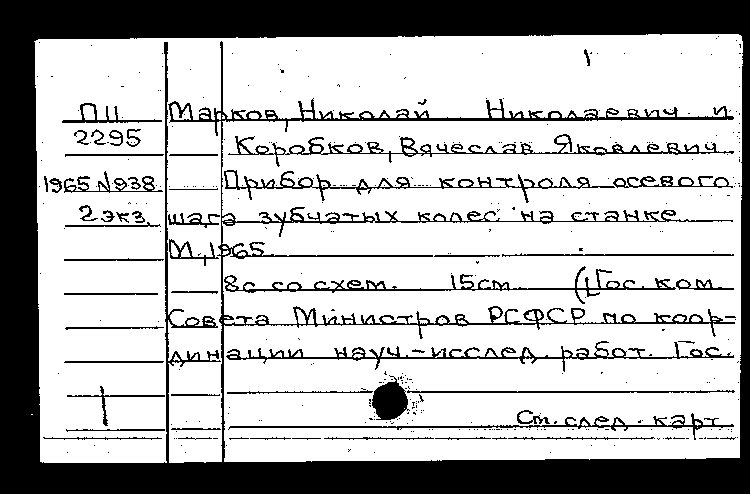 1
ПII Марков, Николай Николаевич и
2295 Коробков, Вячеслав Яковлевич
1965 №938 Прибор для контроля осевого
2 экз. шага зубчатых колес на станке
М., 1965.
8с со схем. 15см (Гос. ком.
Совета Министров РСФСР по коор-
динации науч.-исслед. работ. Гос.
1 См. след. карт